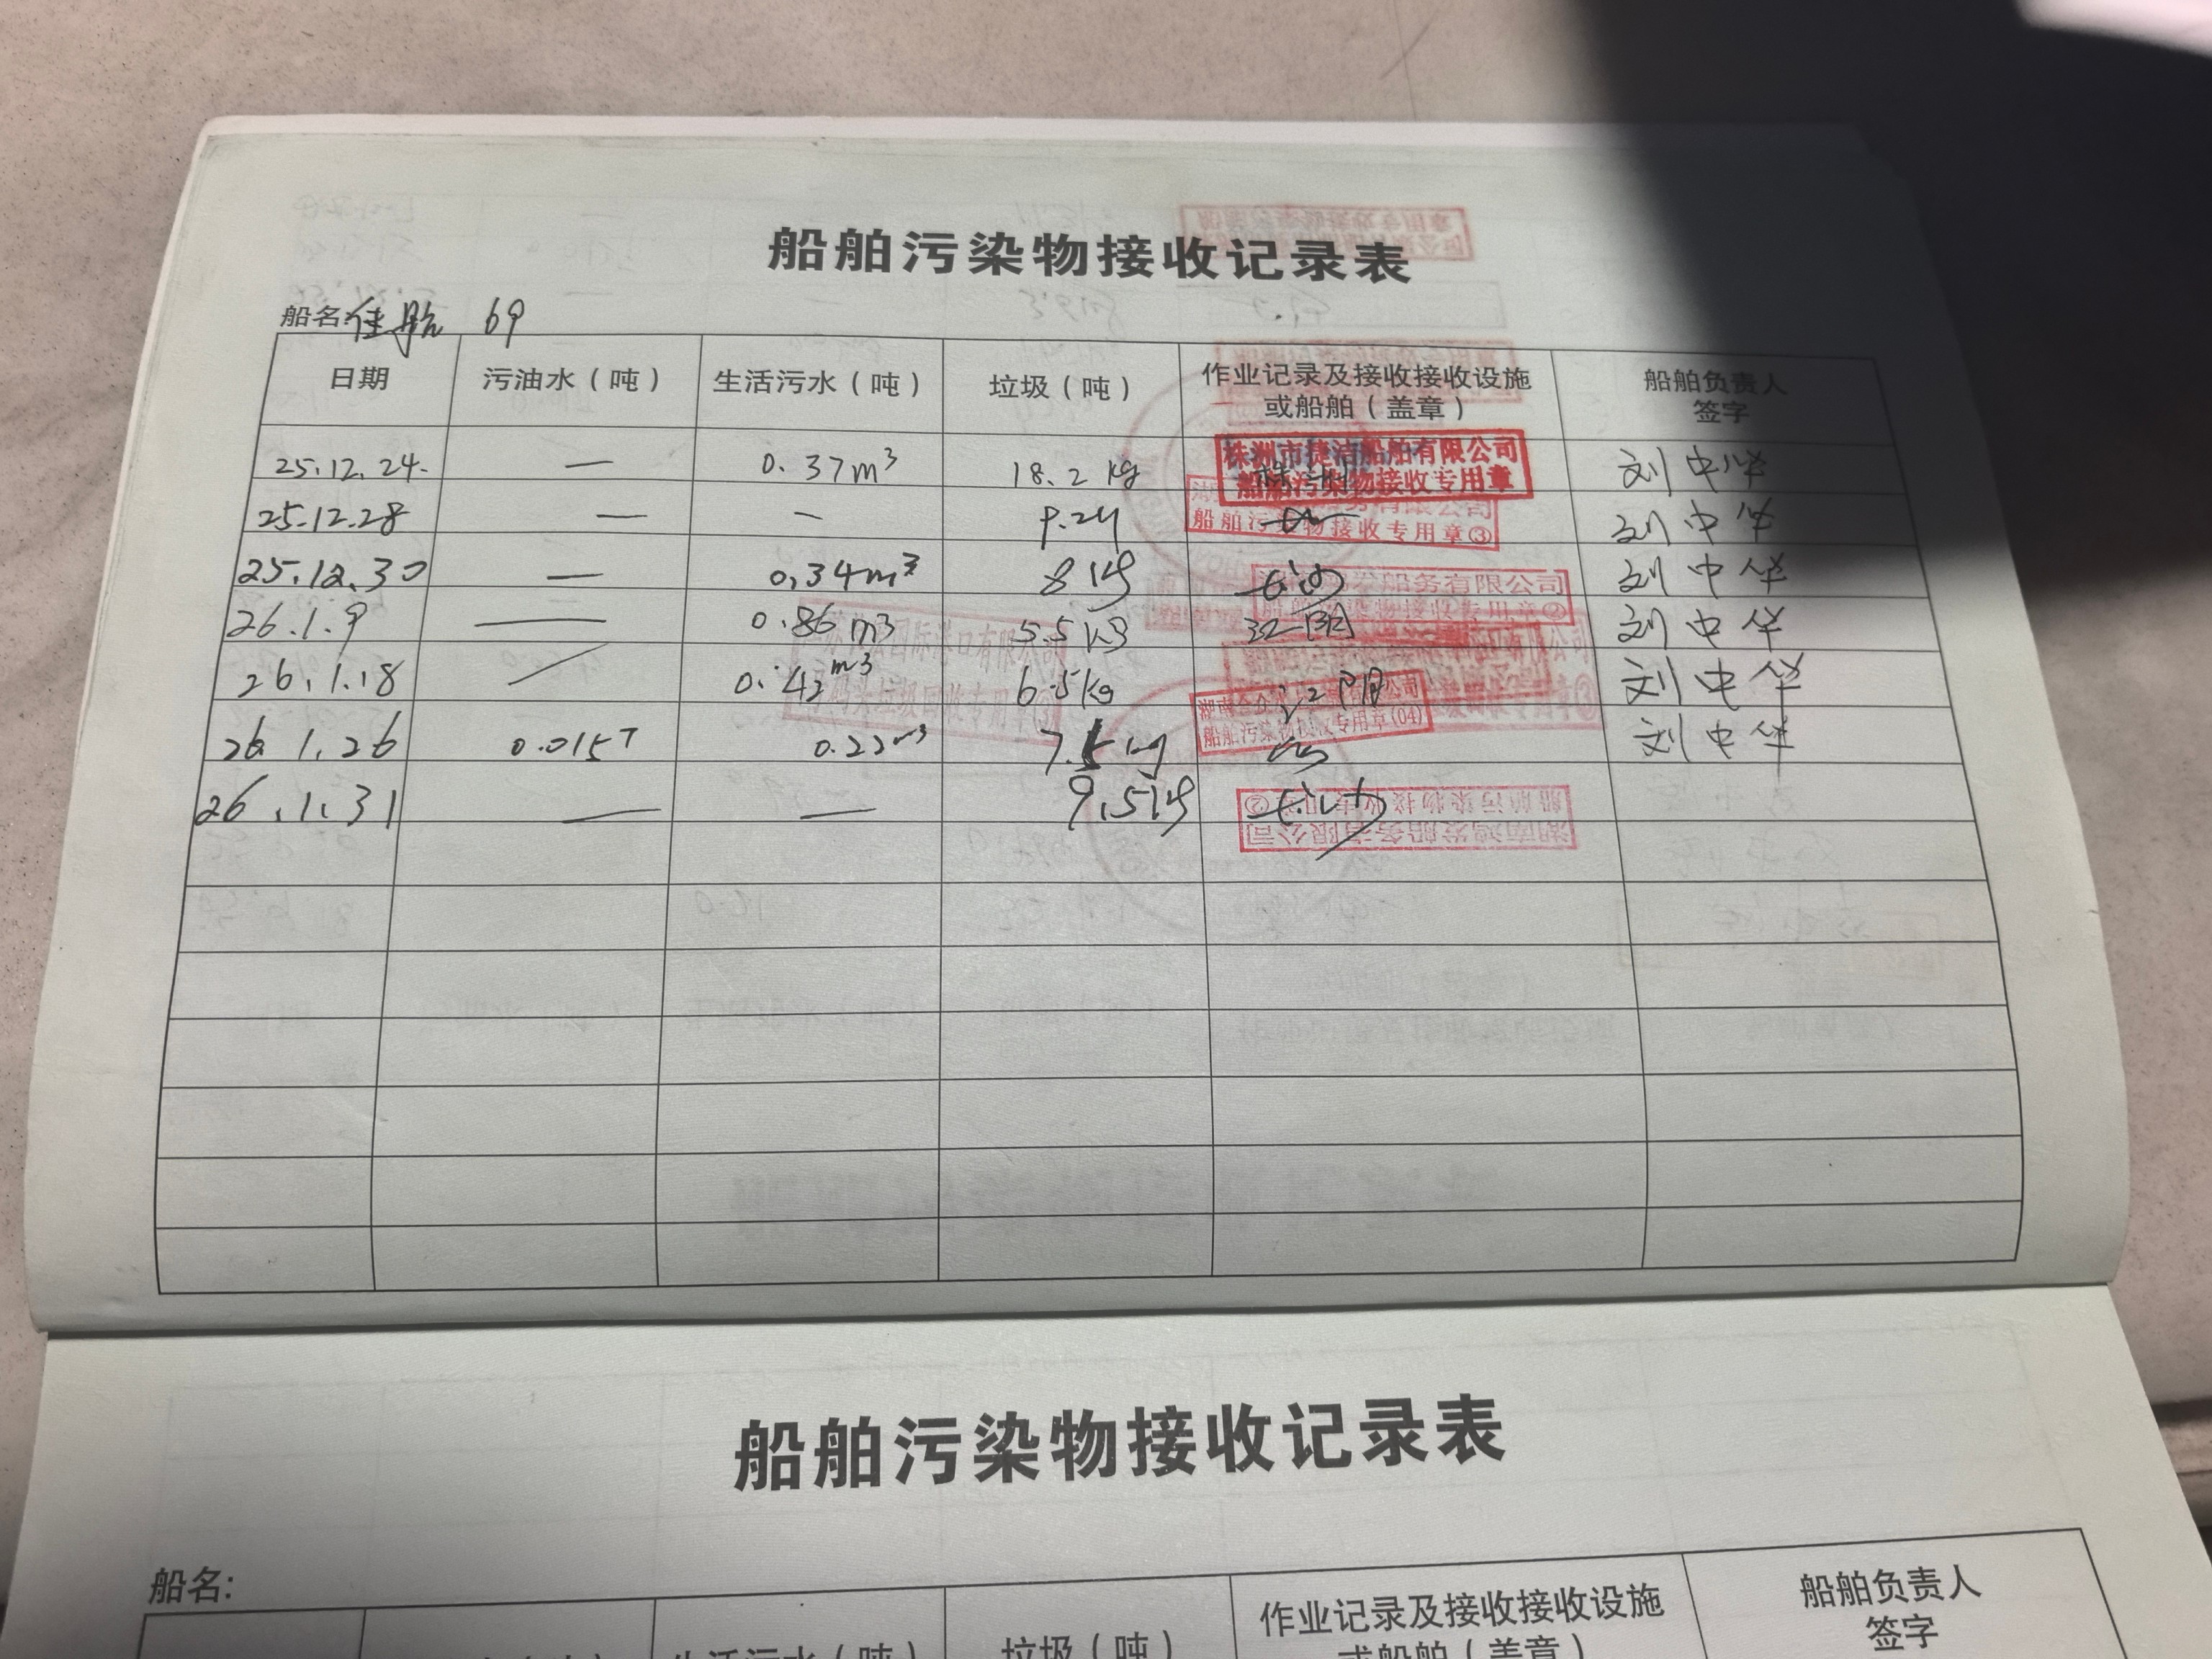 船舶污染物接收记录表
船名:佳航 69
日期 污油水（吨） 生活污水（吨） 垃圾（吨） 作业记录及接收接收设施或船舶（盖章） 船舶负责人签字
25.12.24. — 0.37m³ 18.2kg 株洲市捷洁船舶有限公司 船舶污染物接收专用章 刘中华
25.12.28 — — 船舶污染物接收专用章③ 刘中华
25.12.30 — 0.34m³ 8kg 船务有限公司 刘中华
26.1.9 — 0.86m³ 5.5kg 刘中华
26.1.18 / 0.42m³ 6.5kg 刘中华
26.1.26 0.015T 0.22m³ 船舶污染物接收专用章(04) 刘中华
26.1.31 — — 9.5kg 湖南鸿发船务有限公司 船舶污染物接收专用章②
船舶污染物接收记录表
船名:
生活污水（吨） 垃圾（吨） 作业记录及接收接收设施或船舶（盖章） 船舶负责人签字